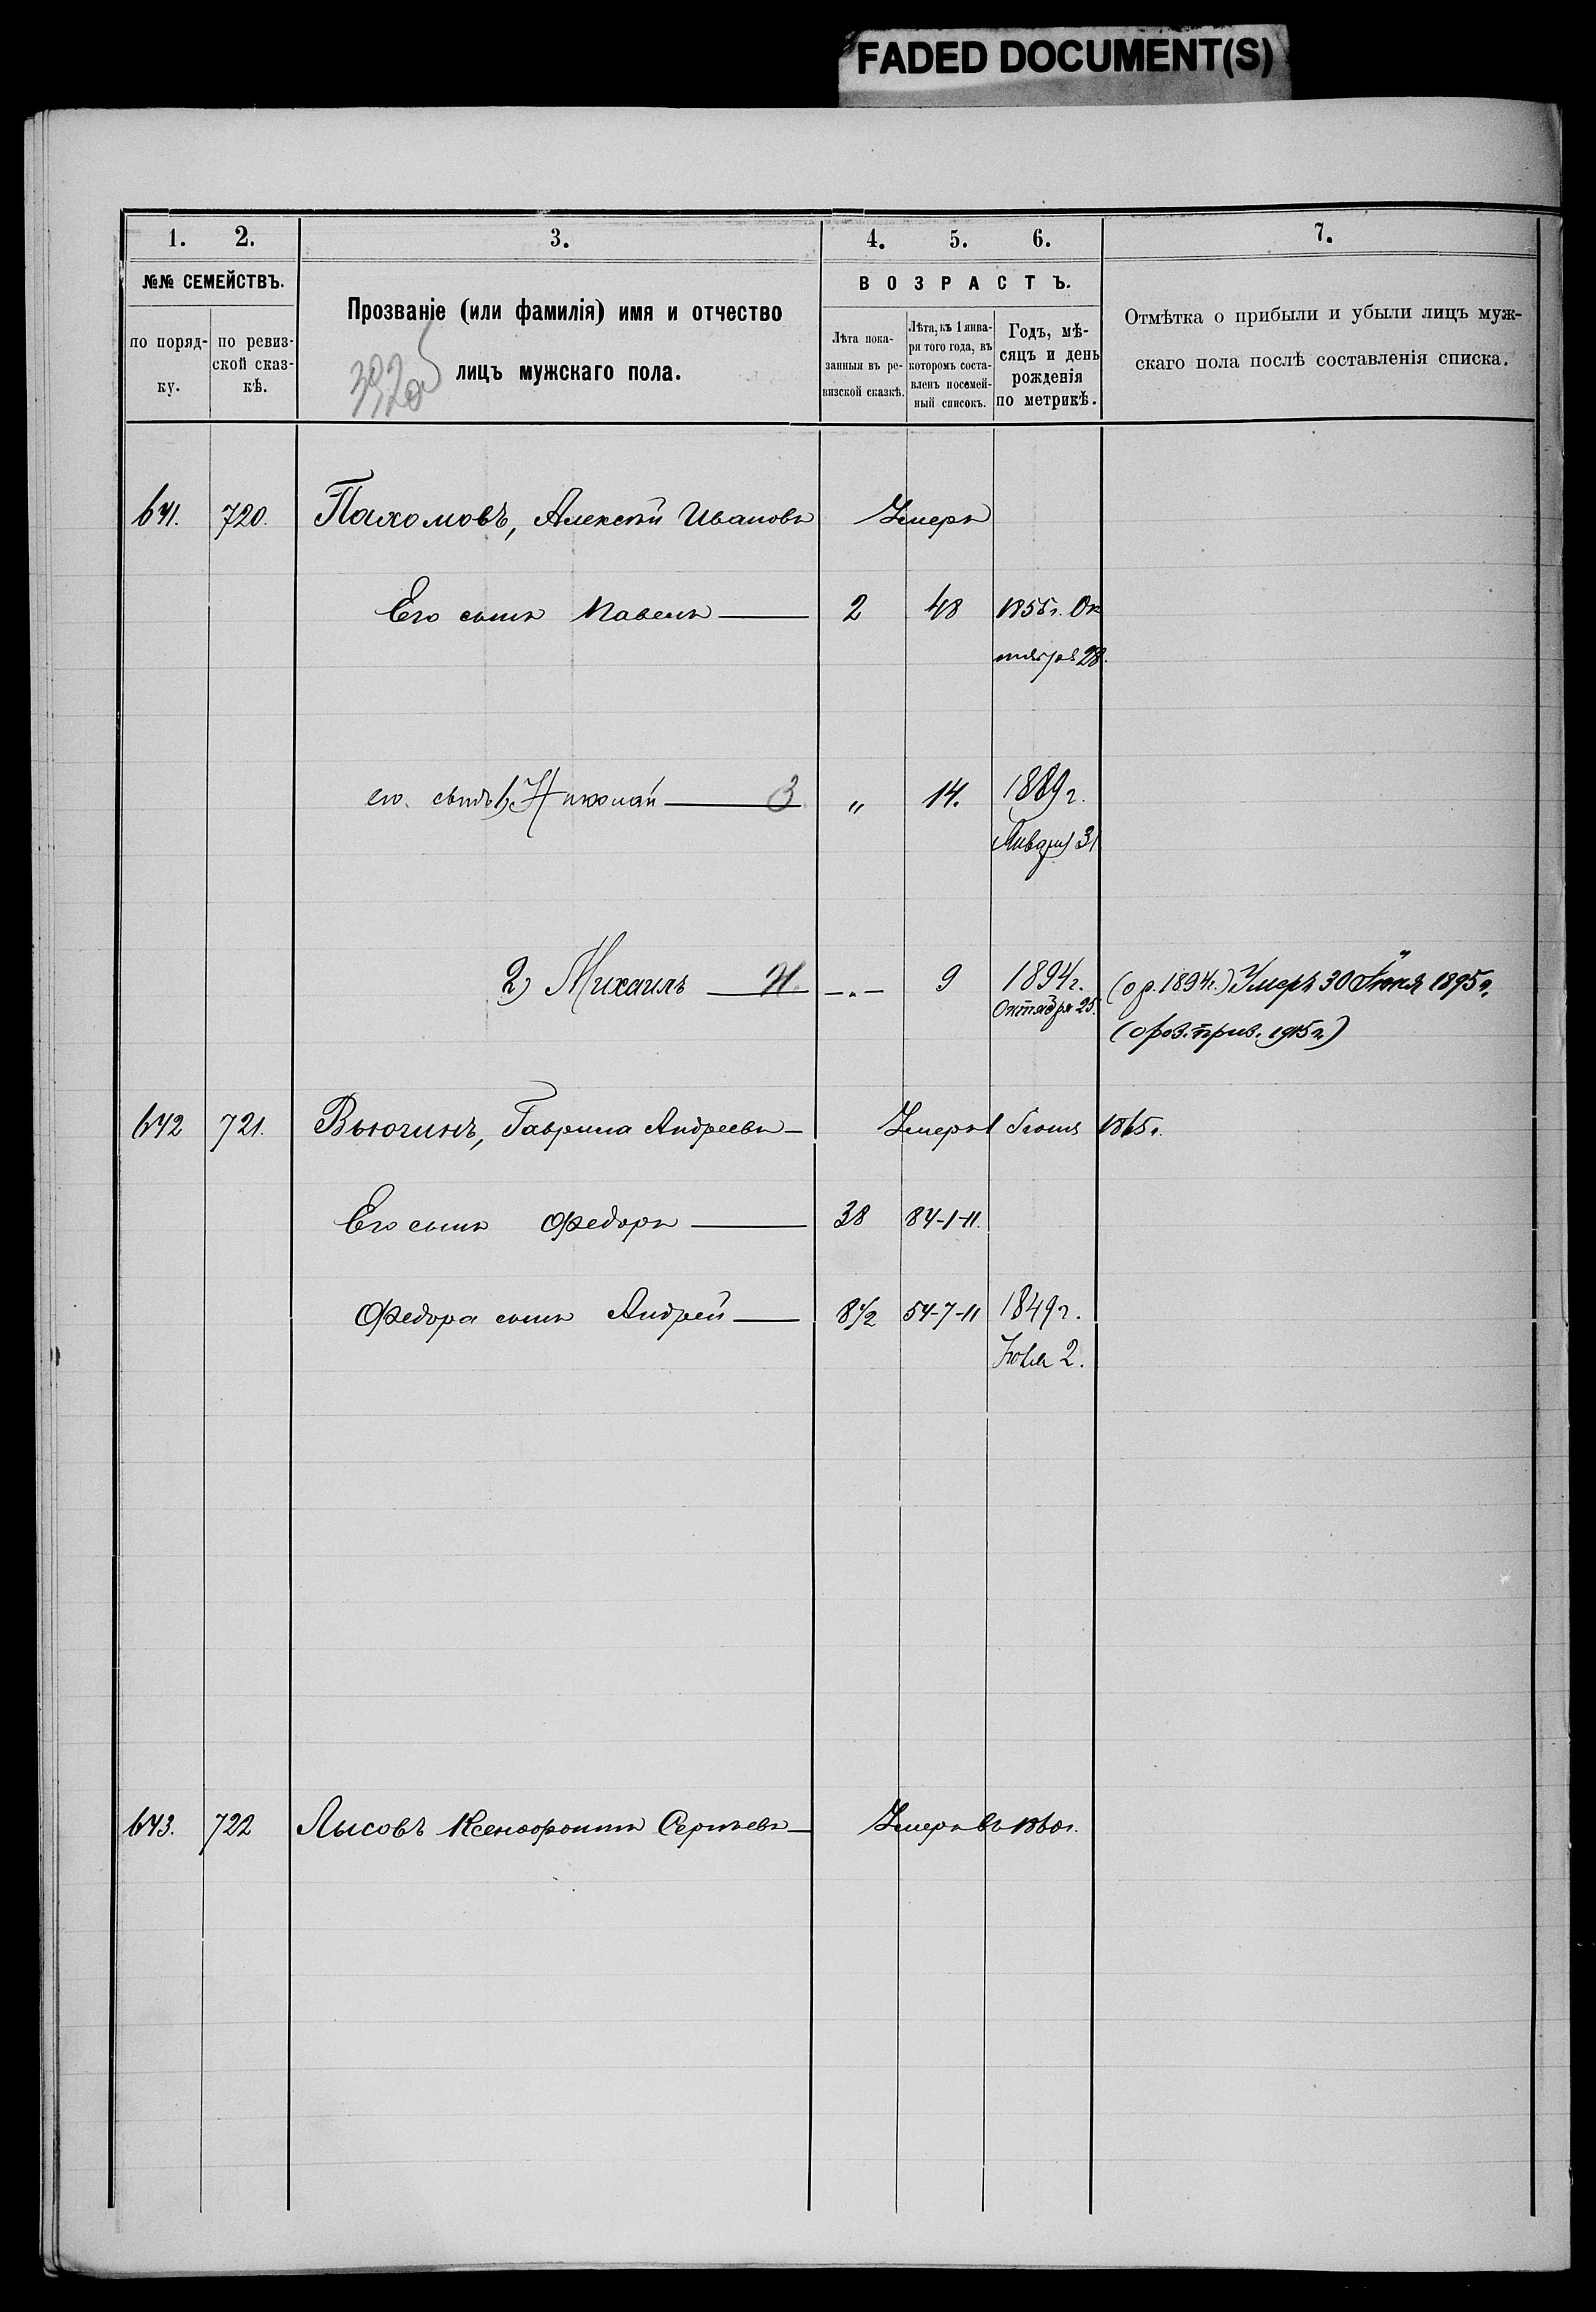 FADED DOCUMENT(S)
1. 2. 3. 4. 5. 6. 7.
№№ СЕМЕЙСТВЪ.
по поряд-
ку.
по ревиз-
ской сказ-
кѣ.
Прозваніе (или фамилія) имя и отчество
лицъ мужскаго пола.
ВОЗРАСТЪ.
Лѣта пока-
занныя въ ре-
визской сказкѣ.
Лѣта, къ 1 янва-
ря того года, въ
которомъ соста-
вленъ посемей-
ный списокъ.
Годъ, мѣ-
сяцъ и день
рожденія
по метрикѣ.
Отмѣтка о прибыли и убыли лицъ муж-
скаго пола послѣ составленія списка.
641. 720. Пахомовъ, Алексѣй Ивановъ Умеръ
Его сынъ Павелъ 2 48 1855г. Ок
тября 28.
его сынъ 1) Николай 3 „ 14. 1889 г.
Января 31
2) Михаилъ 9 1894 г. (о р. 1894г.) Умеръ 30 Іюня 1895 г.
Октября 25. 1915 г.)
642 721. Вьюгинъ, Гаврила Андреевъ Умеръ 1865г.
Его сынъ Федоръ 38 84-1-11.
Федора сынъ Андрей 8½ 54-7-11 1849 г.
2.
643. 722 Лысовъ Ксенофонтъ Сергѣевъ Умеръ въ 1860г.